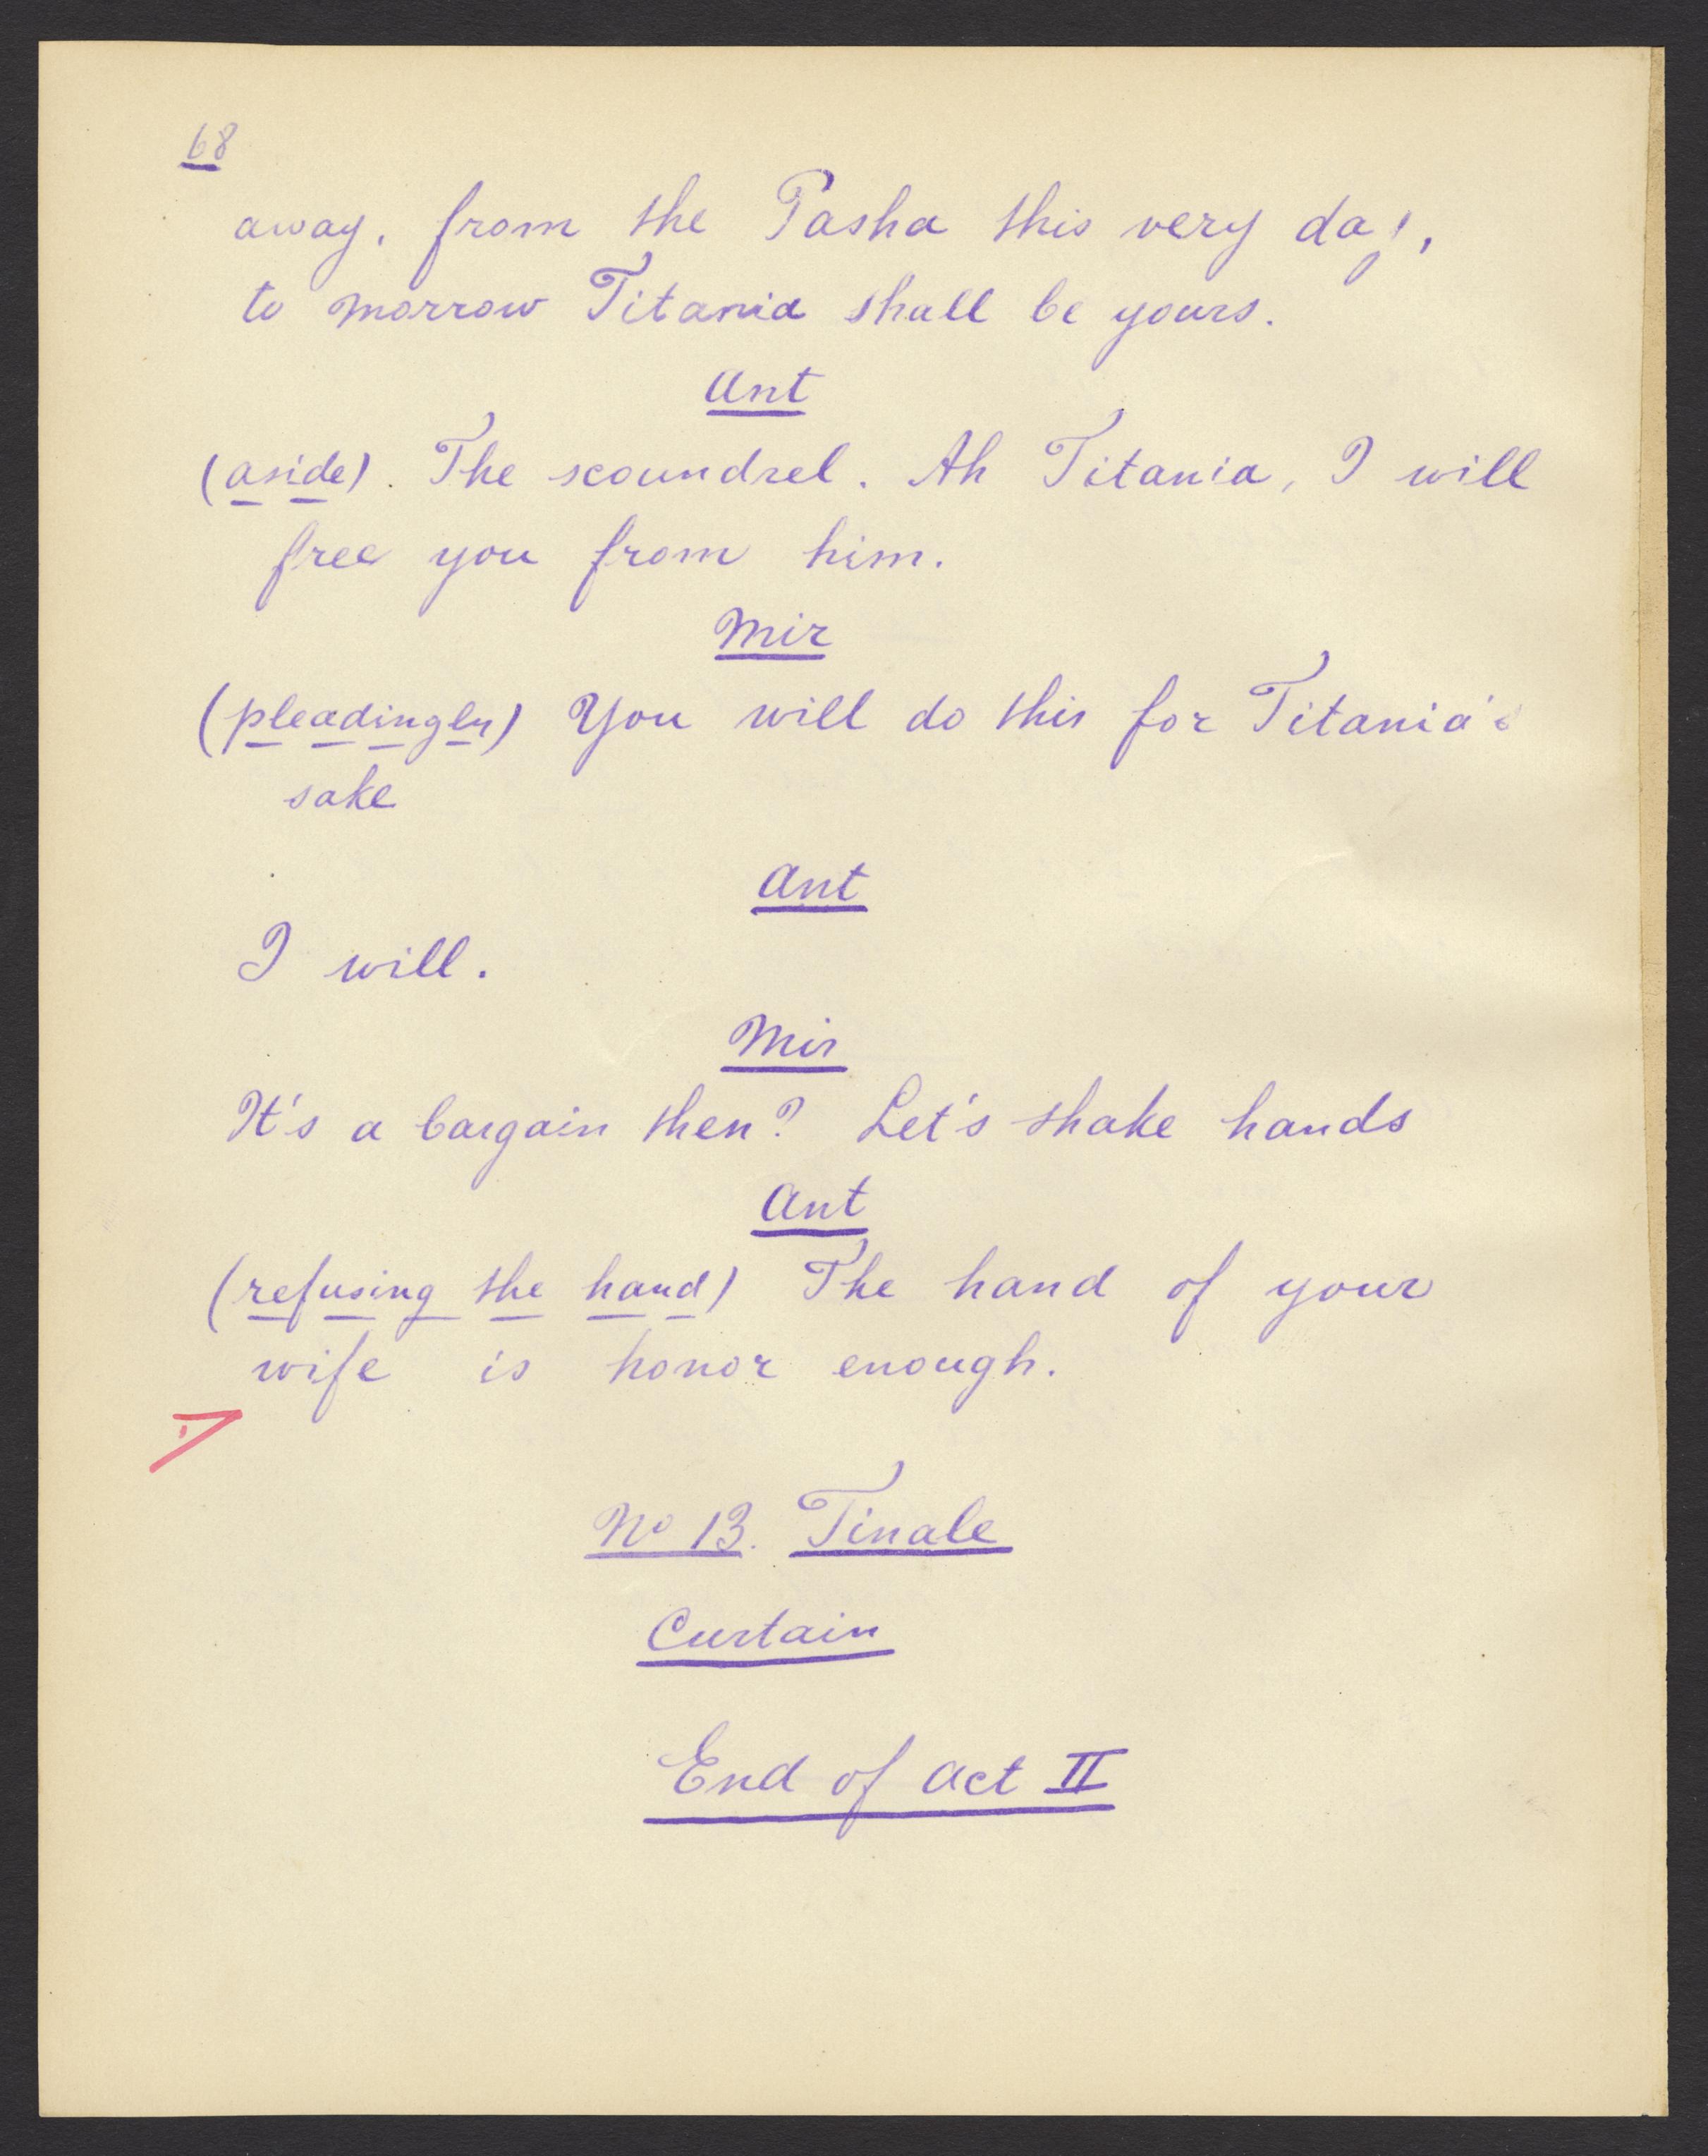 68
away, from the Pasha this very day,
to morrow Titania shall be yours.
Ant
(aside). The scoundrel. Ah Titania, I will
free you from him.
Mir
(pleadingly) You will do this for Titania's
sake
Ant
I will.
Mir
It's a bargain then? Let's shake hands
Ant
(refusing the hand) The hand of your
wife is honor enough.
No 13. Finale
Curtain
End of Act II